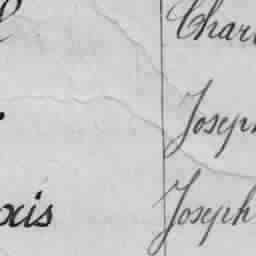 Char
Joseph
ais Joseph